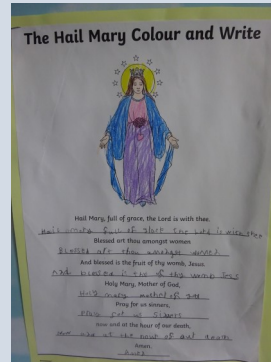 The Hail Mary Colour and Write
Hail Mary, full of grace, the Lord is with thee.
Hail mary full of the Lord is
Blessed art thou amongst women
Blessed art thou amongst
And blessed is the fruit of thy womb, Jesus.
And is the of thy womb
Holy Mary, Mother of God,
Holy mary mother of
Pray for us sinners,
us sinners
now and at the hour of our death,
at the hour of death
Amen.